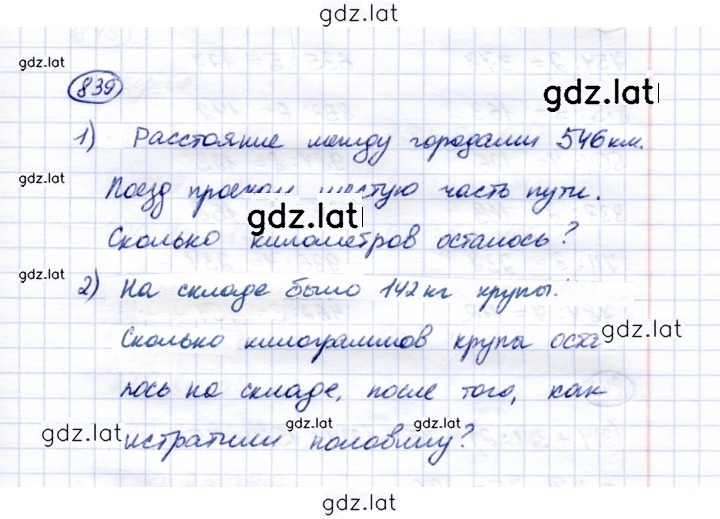 gdz.lat
gdz.lat
839
gdz.lat
1) Расстояние между городами 546 км.
gdz.lat
Поезд проехал шестую часть пути.
gdz.lat
Сколько километров осталось?
gdz.lat
2) На складе было 142 кг крупы.
gdz.lat
Сколько килограммов крупы оста
лось на складе, после того, как
gdz.lat gdz.lat gdz.lat
истратили половину?
gdz.lat